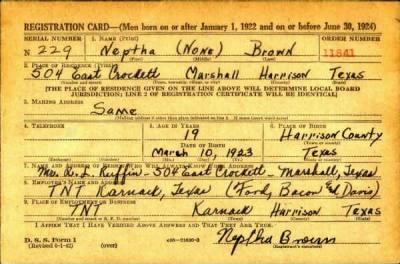 REGISTRATION CARD—(Men born on or after January 1, 1922 and on or before June 30, 1924)
SERIAL NUMBER 1. NAME (Print) ORDER NUMBER
N 229 Neptha (None) Brown 11841
(First) (Middle) (Last)
2. PLACE OF RESIDENCE (Print)
504 East Crockett Marshall Harrison Texas
(Number and street) (Town, township, village, or city) (County) (State)
[THE PLACE OF RESIDENCE GIVEN ON THE LINE ABOVE WILL DETERMINE LOCAL BOARD
JURISDICTION; LINE 2 OF REGISTRATION CERTIFICATE WILL BE IDENTICAL]
3. MAILING ADDRESS
Same
[Mailing address if other than place indicated on line 2. If same insert word same]
4. TELEPHONE 5. AGE IN YEARS 6. PLACE OF BIRTH
19 Harrison County
DATE OF BIRTH
March 10, 1923 Texas
7. NAME AND ADDRESS OF PERSON WHO WILL ALWAYS KNOW YOUR ADDRESS
Mrs. R. L. Ruffin - 504 East Crockett - Marshall, Texas
8. EMPLOYER'S NAME AND ADDRESS
TNT Karnack, Texas (Ford, Bacon & Davis)
9. PLACE OF EMPLOYMENT OR BUSINESS
TNT Karnack Harrison Texas
(Number and street or R. F. D. number) (Town) (County) (State)
I AFFIRM THAT I HAVE VERIFIED ABOVE ANSWERS AND THAT THEY ARE TRUE.
D. S. S. Form 1 Neptha Brown
(Revised 6-1-42) (over) (Registrant's signature)